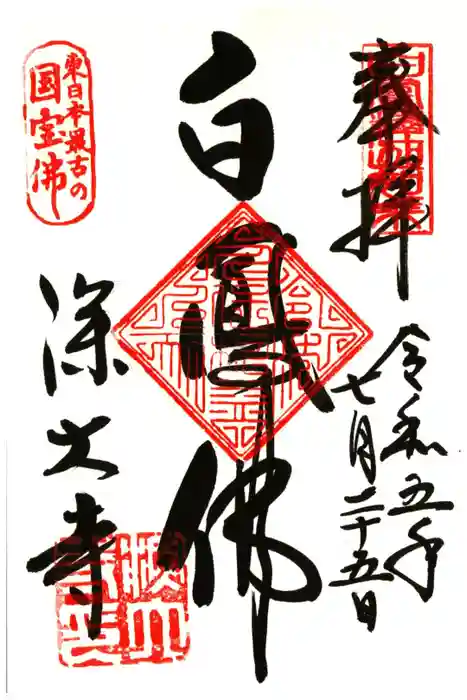 奉拝
令和五年
七月二十五日
白鳳佛
深大寺
東日本最古の
国宝佛